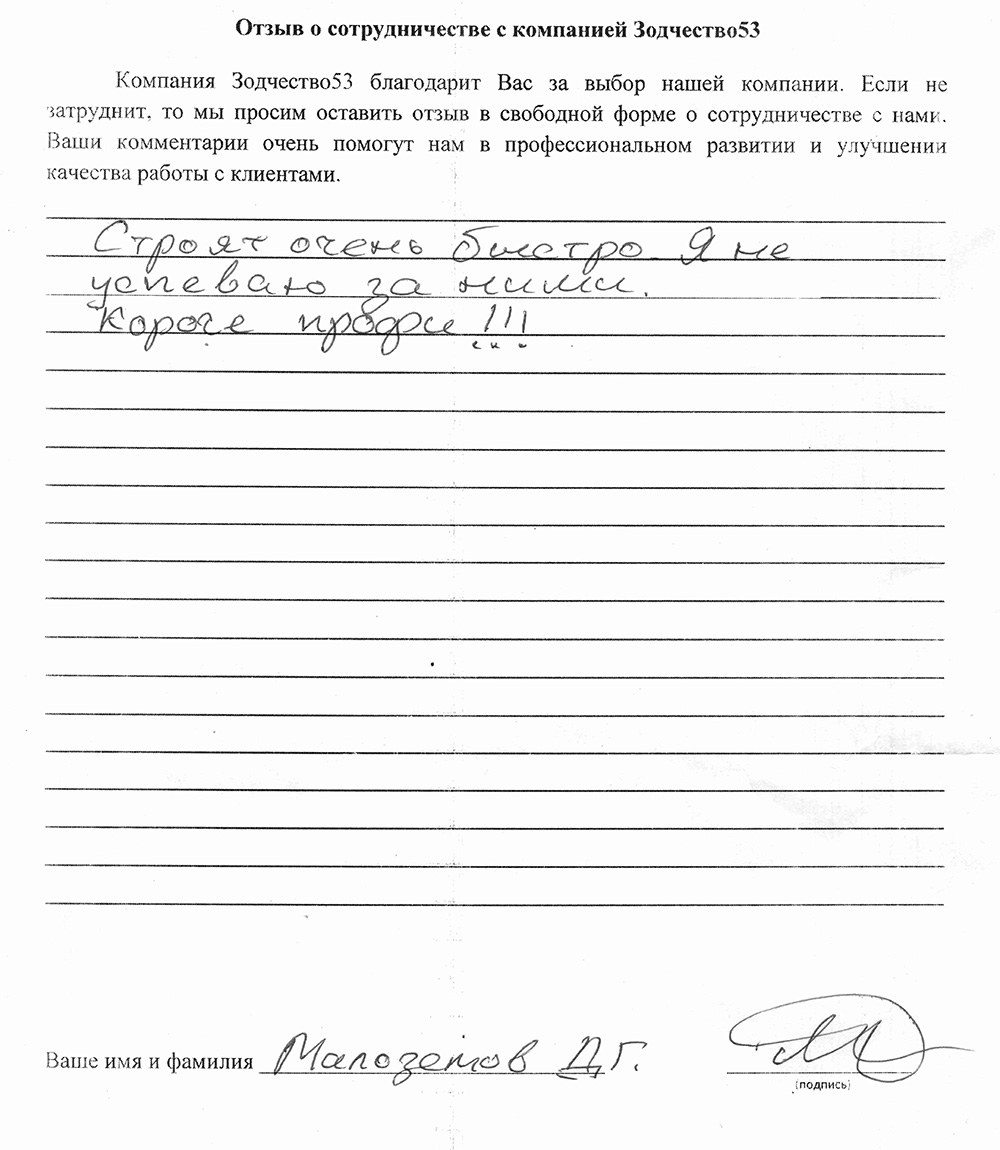 Отзыв о сотрудничестве с компанией Зодчество53
Компания Зодчество53 благодарит Вас за выбор нашей компании. Если не
затруднит, то мы просим оставить отзыв в свободной форме о сотрудничестве с нами.
Ваши комментарии очень помогут нам в профессиональном развитии и улучшении
качества работы с клиентами.
Строят очень быстро. Я не
успеваю за ними.
Короче профи !!!
Ваше имя и фамилия Малоземов Д.Г.
(подпись)